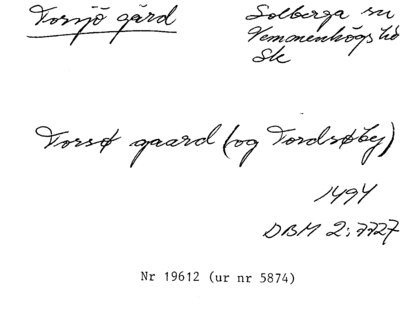 Torsjö gård
Solberga sn
Vemmenhögs hd
Sk
Torsø gaard (og Tordsøby)
1494
DBM 2:7727
Nr 19612 (ur nr 5874)